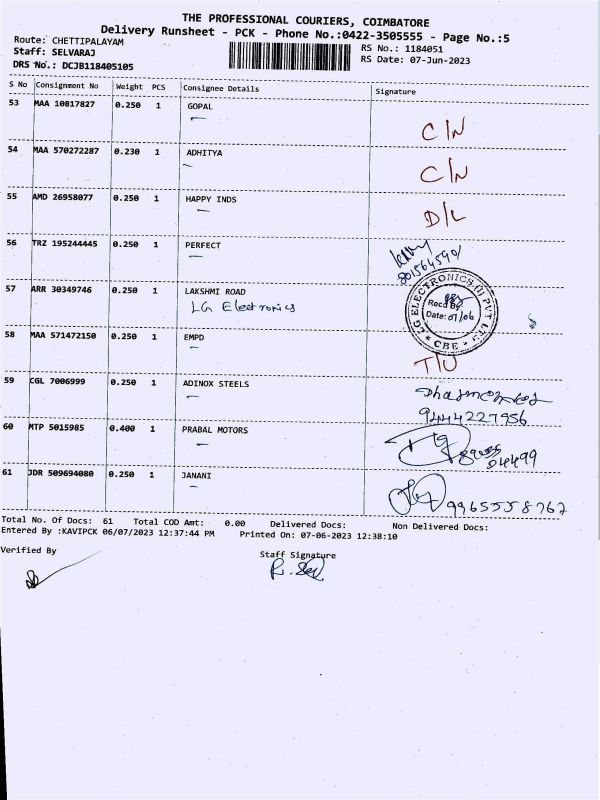 THE PROFESSIONAL COURIERS, COIMBATORE
Delivery Runsheet - PCK - Phone No.:0422-3505555 - Page No.:5
Route: CHETTIPALAYAM
RS No.: 1184051
Staff: SELVARAJ
RS Date: 07-Jun-2023
DRS No.: DCJB118405105
S No Consignment No Weight PCS Consignee Details Signature
53 MAA 10817827 0.250 1 GOPAL
C/N
54 MAA 570272287 0.230 1 ADHITYA
C/N
55 AMD 26958077 0.250 1 HAPPY INDS
D/L
56 TRZ 195244445 0.250 1 PERFECT
57 ARR 30349746 0.250 1 LAKSHMI ROAD
LG Electronics
LG ELECTRONICS (I) PVT LTD
Recd By:
Date: 07/06
* CBE *
58 MAA 571472150 0.250 1 EMPD
T/U
59 CGL 7006999 0.250 1 ADINOX STEELS
9444227956
60 MTP 5015985 0.400 1 PRABAL MOTORS
61 JDR 509694080 0.250 1 JANANI
9965558767
Total No. Of Docs: 61 Total COD Amt: 0.00 Delivered Docs: Non Delivered Docs:
Entered By :KAVIPCK 06/07/2023 12:37:44 PM Printed On: 07-06-2023 12:38:10
Verified By
Staff Signature